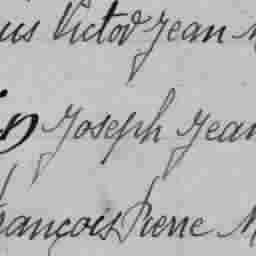 Victor Jean
Joseph Jean
François Pierre